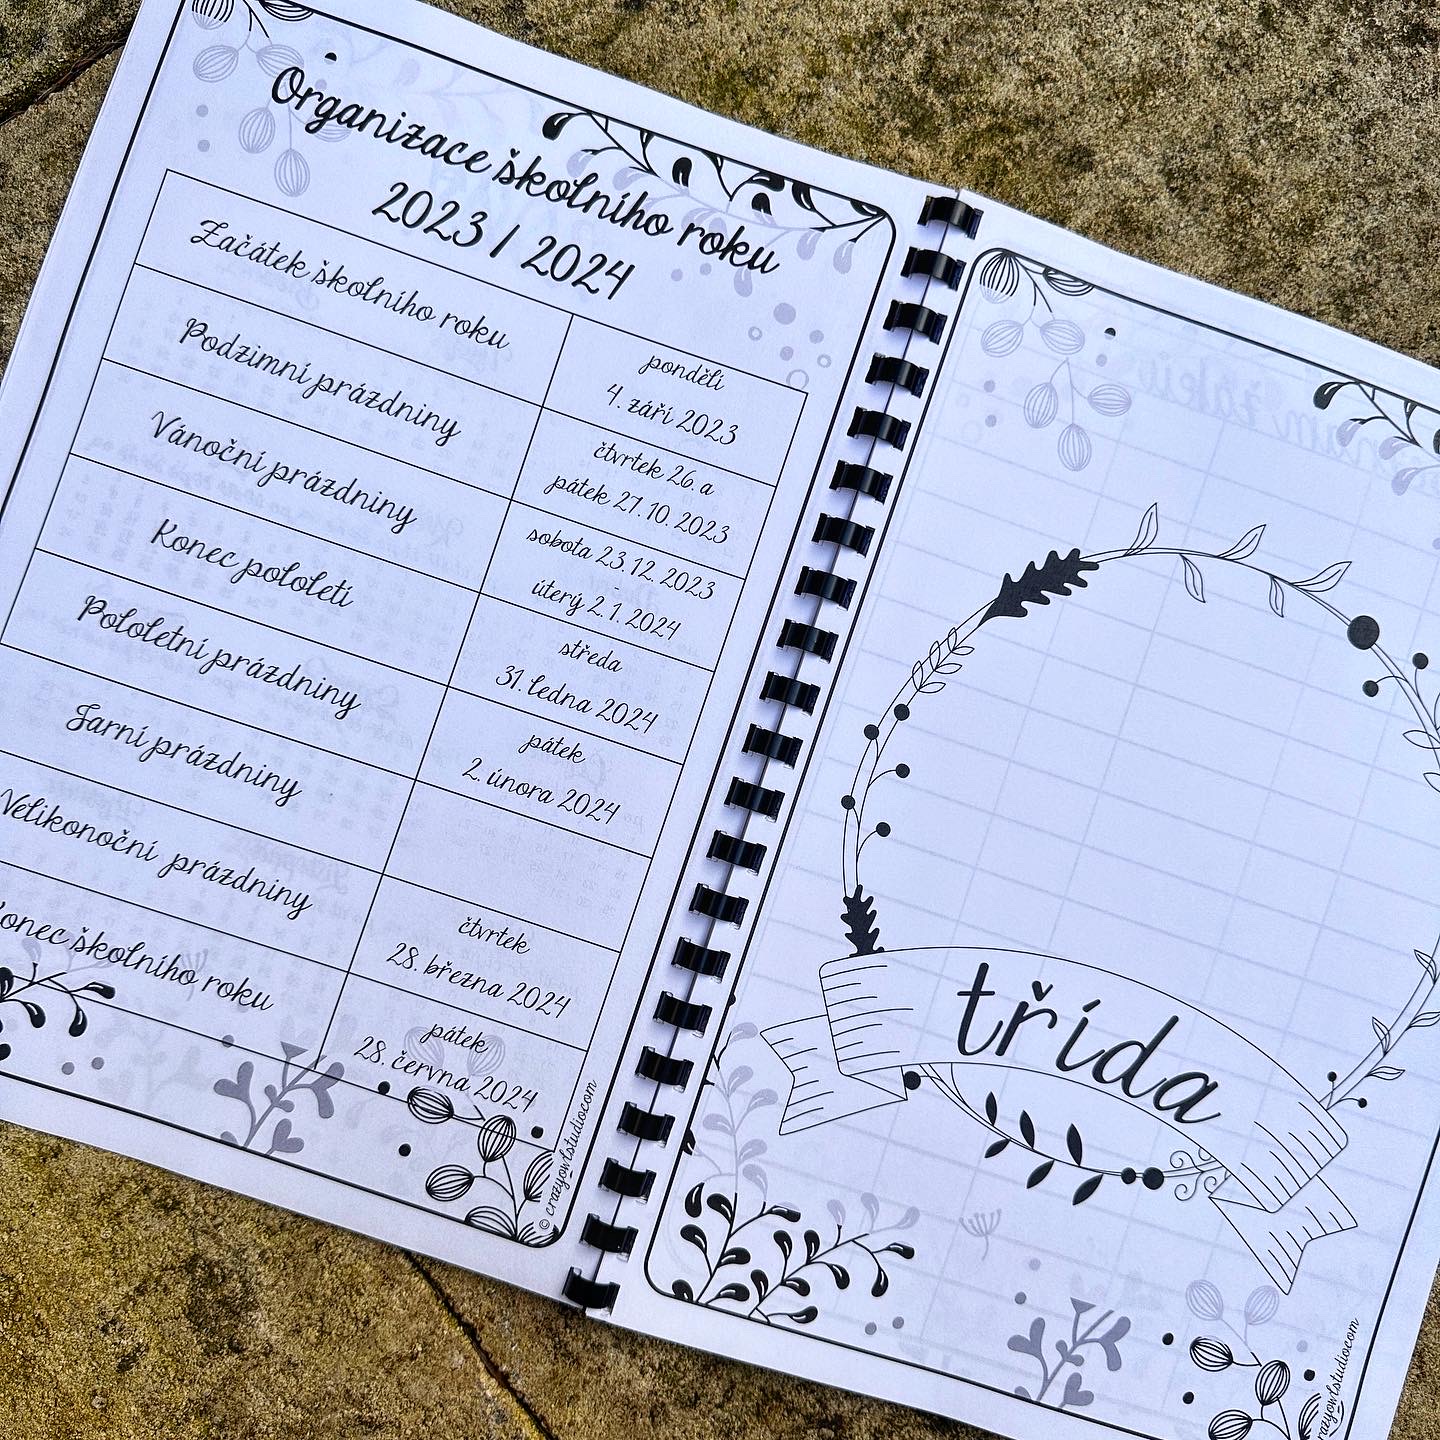 Organizace školního roku
2023 / 2024
Začátek školního roku
pondělí
4. září 2023
Podzimní prázdniny
čtvrtek 26. a
pátek 27. 10. 2023
Vánoční prázdniny
sobota 23. 12. 2023
-
úterý 2. 1. 2024
Konec pololetí
středa
31. ledna 2024
Pololetní prázdniny
pátek
2. února 2024
Jarní prázdniny
Velikonoční prázdniny
čtvrtek
28. března 2024
Konec školního roku
pátek
28. června 2024
© crazyowlstudio.com
třída
crazyowlstudio.com